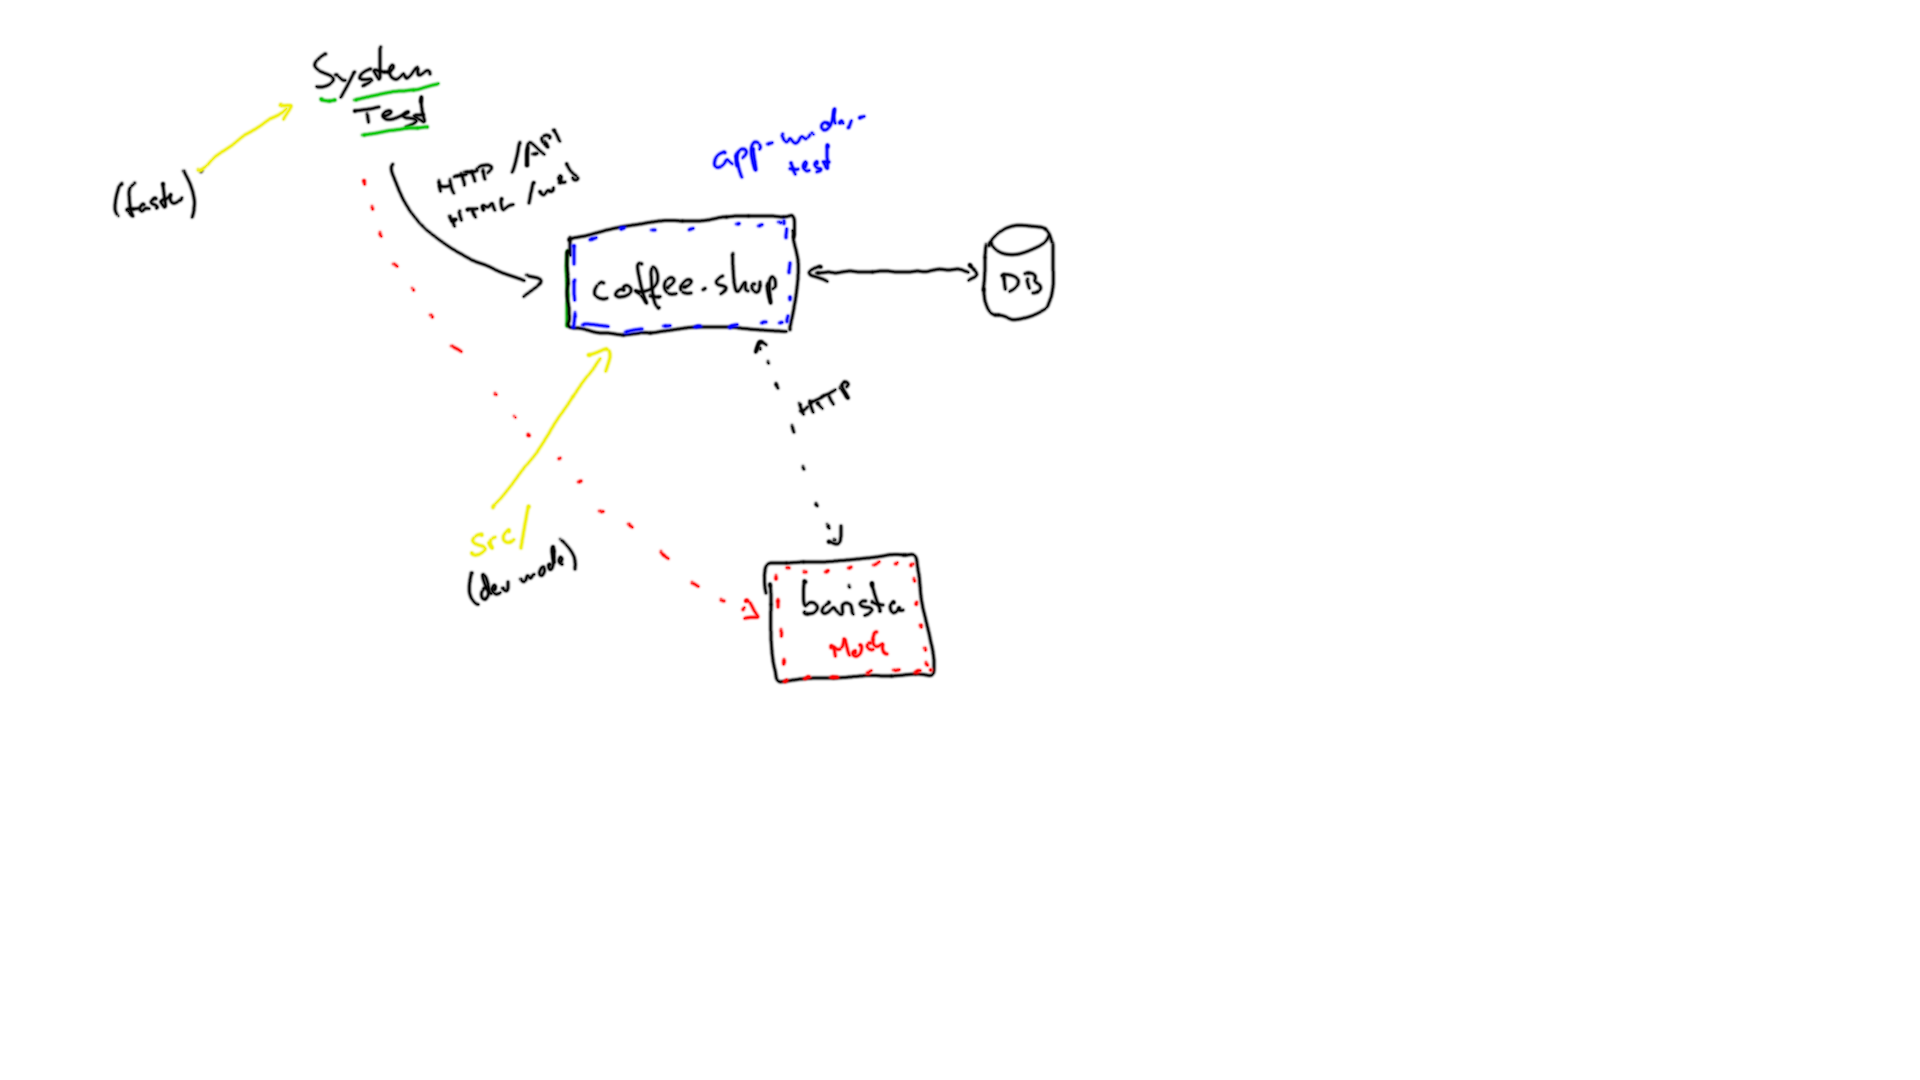 System
Test
(faster)
HTTP /API
HTML /web
app-under-
test
coffee-shop
DB
HTTP
src/
(dev mode)
barista
Mock